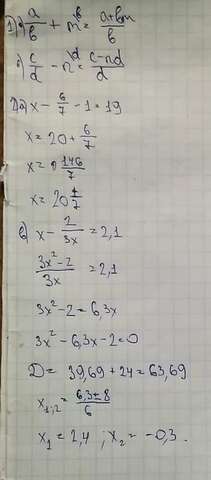 1) а) a/b + m^b = a+bm/b
б) c/d - n^d = c-nd/d
2) а) x - 6/7 - 1 = 19
x = 20 + 6/7
x = 146/7
x = 20 6/7
б) x - 2/3x = 2,1
3x²-2/3x = 2,1
3x²-2 = 6,3x
3x²-6,3x-2=0
D = 39,69+24=63,69
x₁,₂ = 6,3±8/6
x₁ = 2,4 ; x₂ = -0,3.